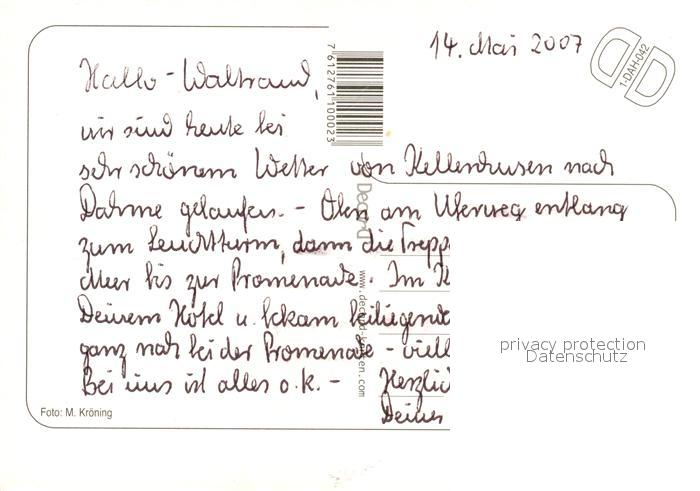 14. Mai 2007
Hallo - Waltraud,
wir sind heute bei
sehr schönem Wetter von Kellenhusen nach
Dahme gelaufen. - Oben am Uferweg entlang
zum Leuchtturm, dann die Trepp
Meer bis zur Promenade. Im
Deinem Hotel u. bekam beiliegende
ganz nah bei der Promenade - viell
Bei uns ist alles o.k. - Herzlic
Deine
7612761100023
1-DAH-042
privacy protection
Datenschutz
Foto: M. Kröning